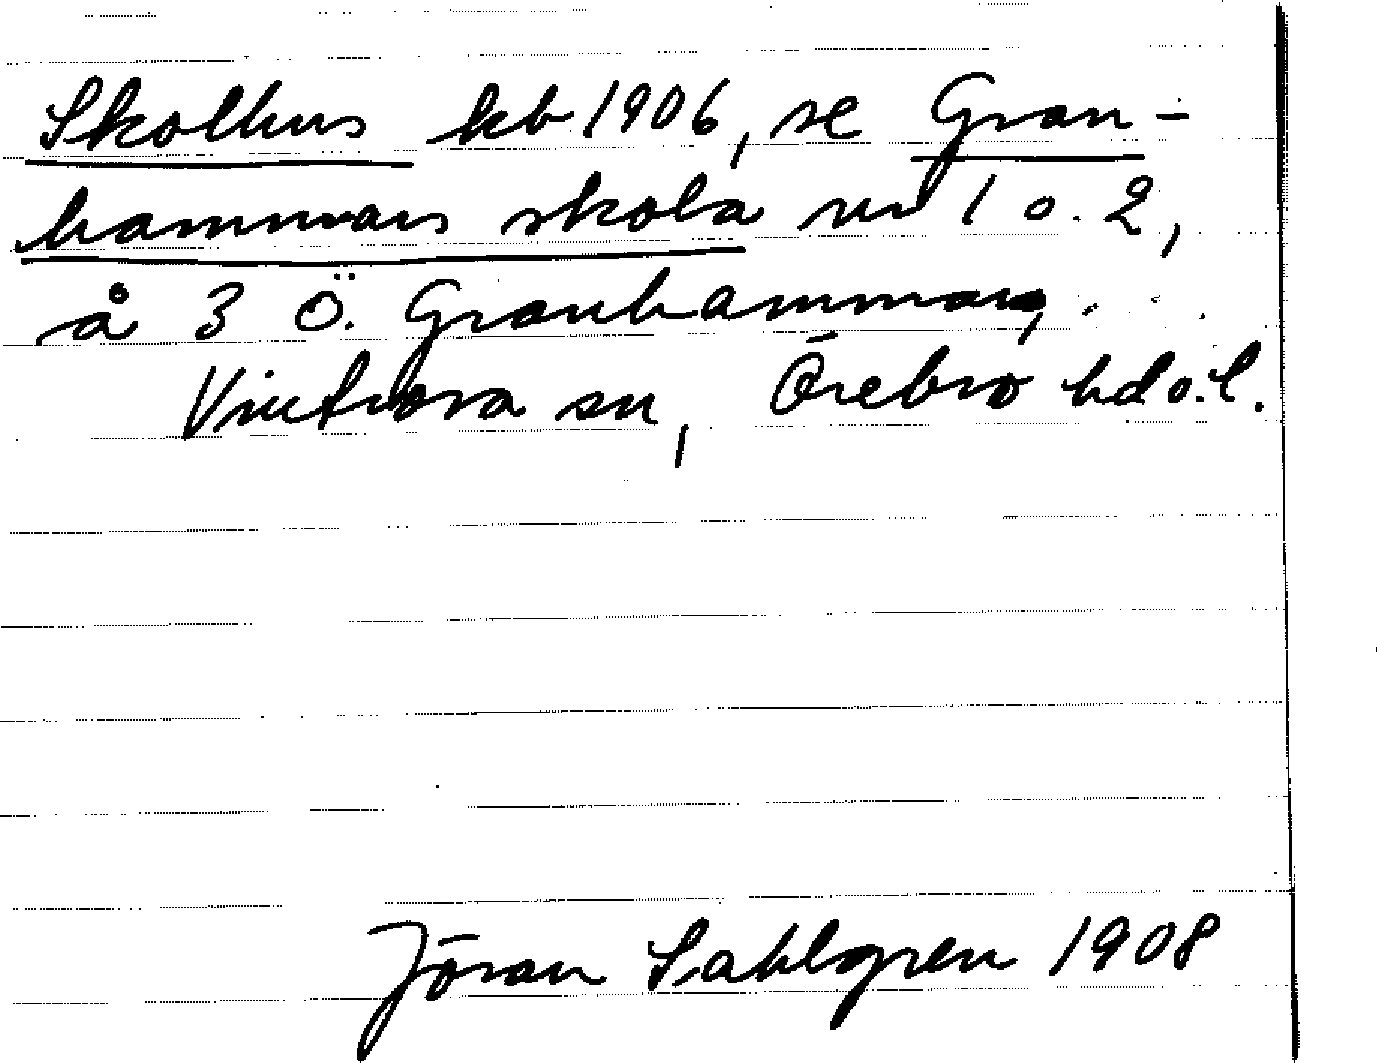 Skolhus kb 1906, se Gran-
hammars skola nr 1 o. 2,
å 3 Ö. Granhammar,
Vintrosa sn, Örebro hd o. l.
Jöran Sahlgren 1908